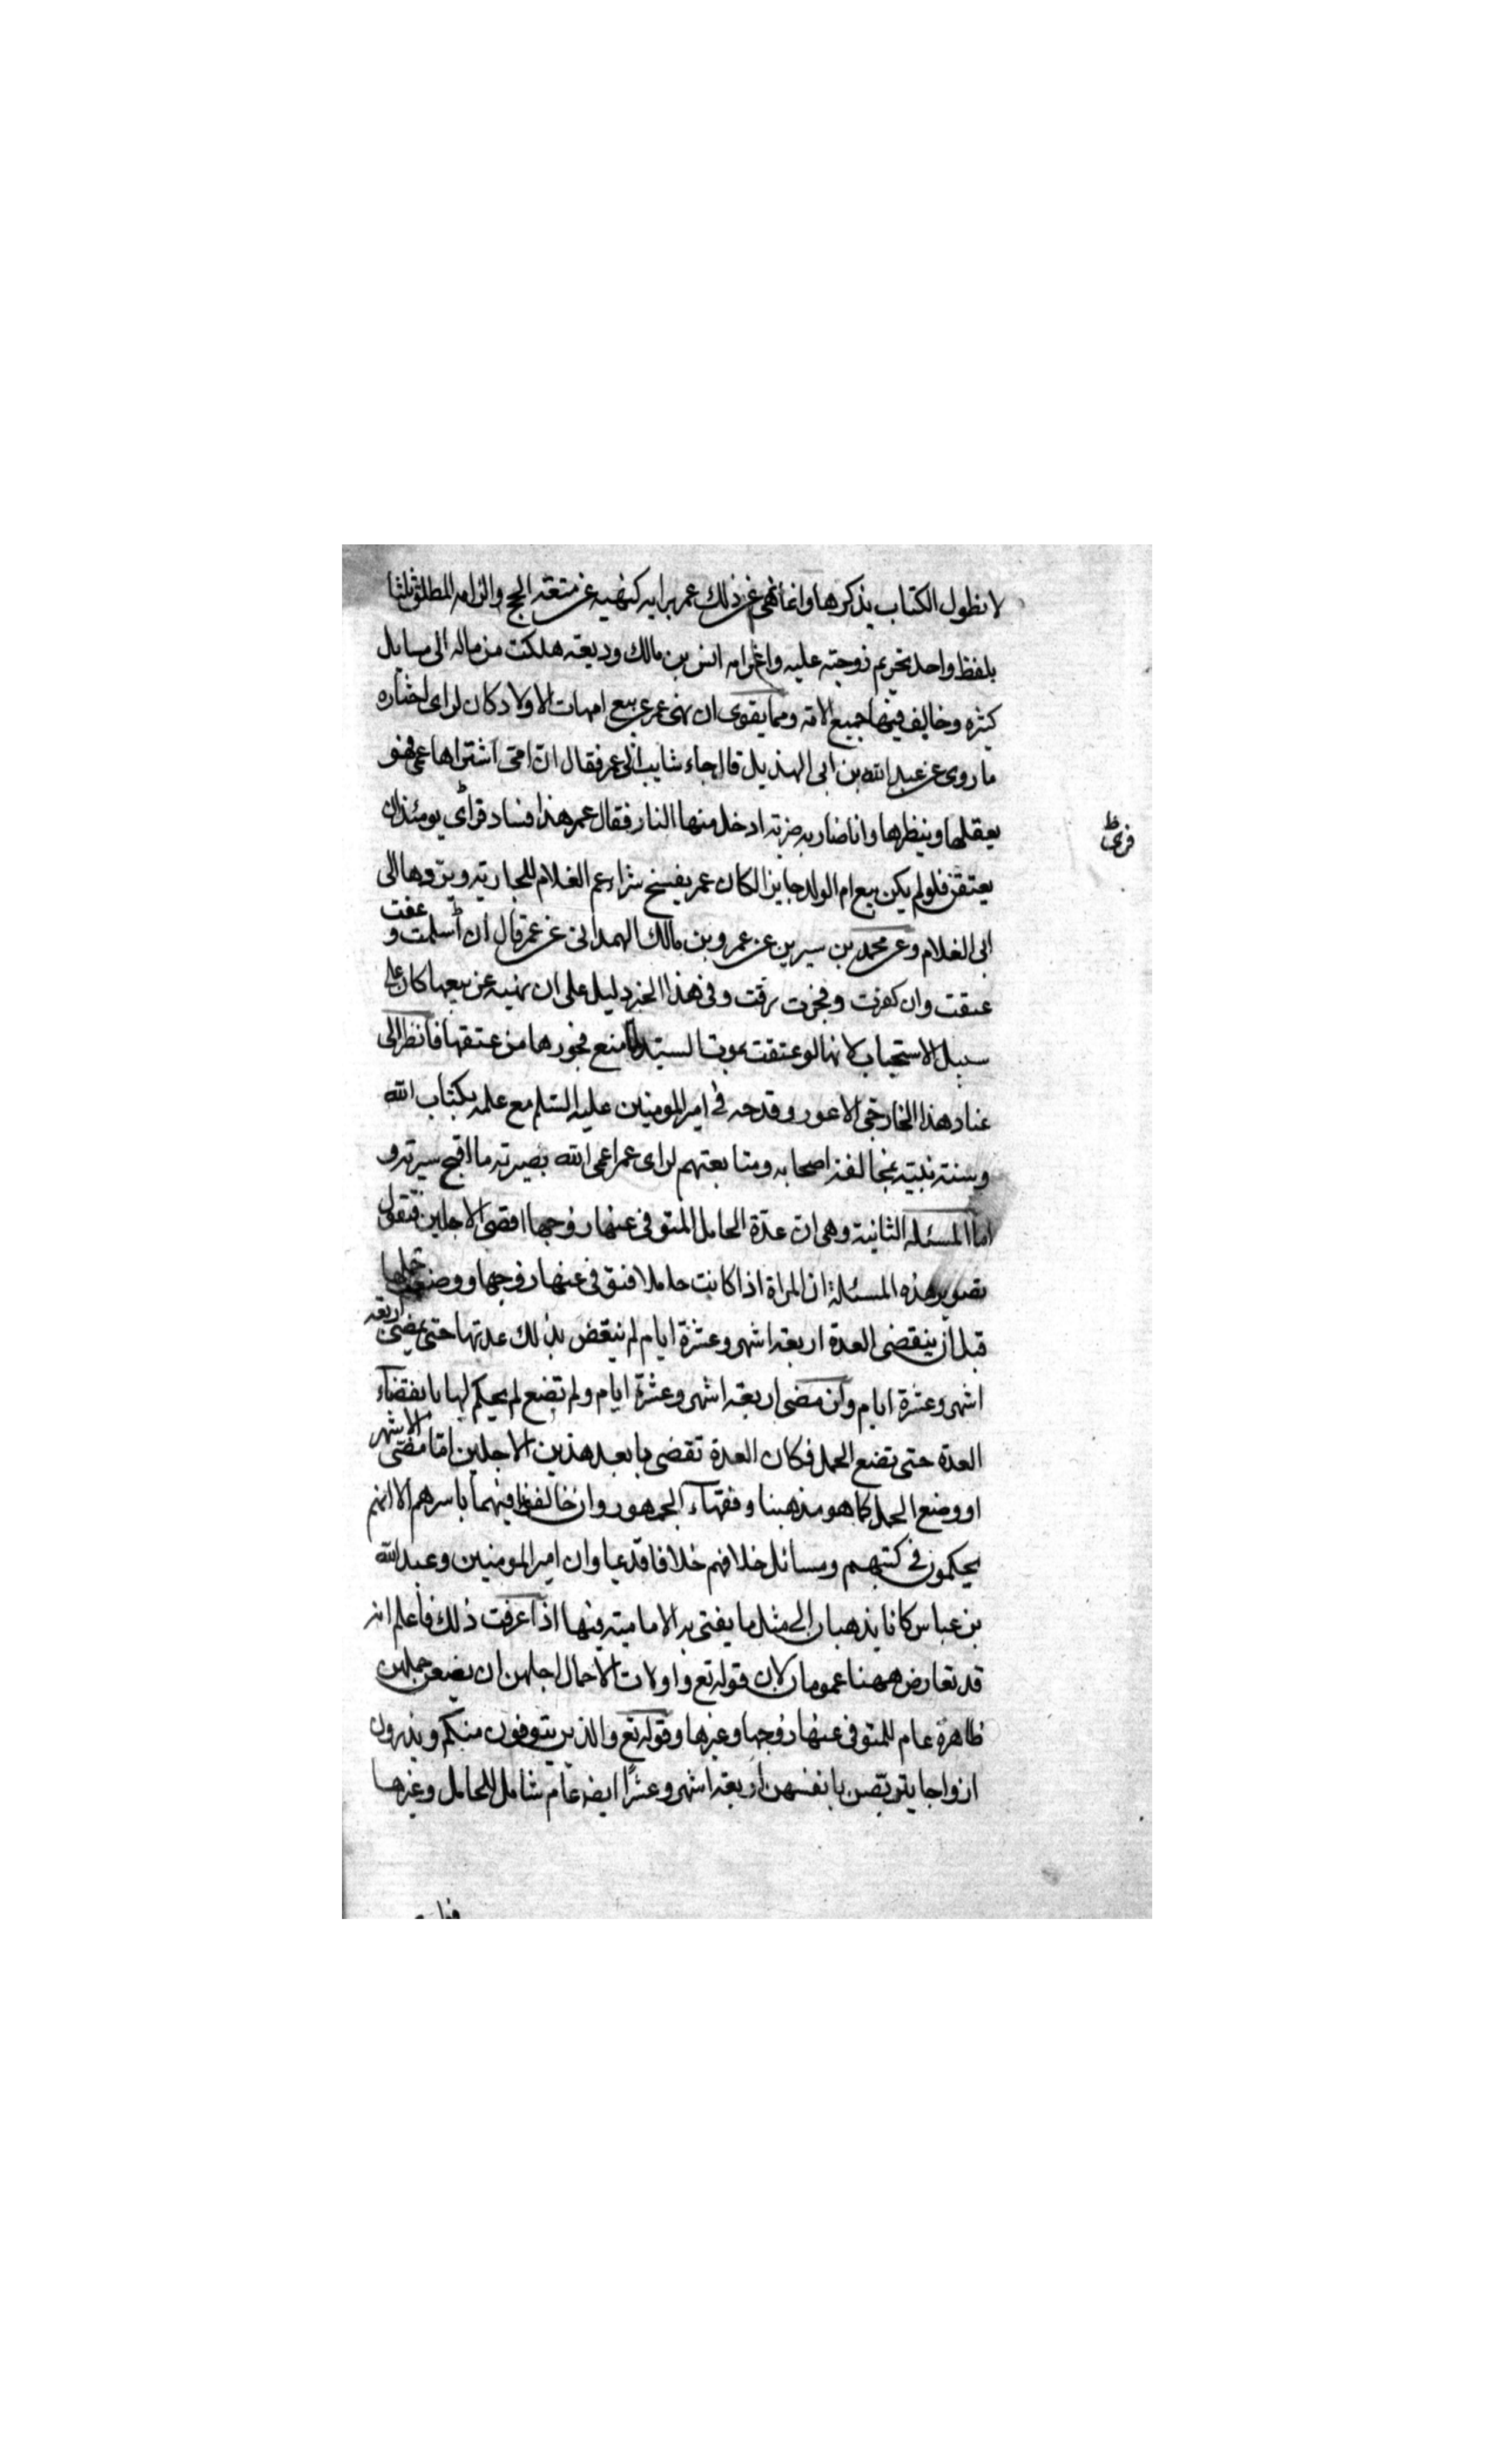 لا نطول الكتاب بذكرها وانما نهى عن ذلك عمر برايه كنهيه عن متعة الحج والزامه المطلق ثلثا
بلفظ واحد تحريم زوجته عليه واغرامه انس بن مالك وديعة هلكت من ماله الى مسايل
كثيره وخالف فيها جميع الامة ومما يقوى ان نهى عمر عن بيع امهات الاولاد كان لراى اختاره
ما روى عن عبد الله بن ابى الهذيل قال جاء شاب الى عمر فقال ان امى اشتراها عمى فهو
يعقلها وينظرها وانا ضاربه ضربة ادخل منها النار فقال عمر هذا فساد فراى يومئذ ان
فراى
يعتقن فلو لم يكن بيع ام الولد جايزا لكان عمر يفسخ شراء عم الغلام للجارية ويردها الى
ابى الغلام وعن محمد بن سيرين عن عمرو بن مالك الهمدانى عن عمر قال ان أسلمت وعفت
عتقت وان كفرت وفجرت رقت وفى هذا الخبر دليل على ان نهيه عن بيعها كان على
سبيل الاستحباب لانها لو عتقت بموت السيد لما منع فجورها من عتقها فانظر الى
عناد هذا الخارجى الاعور وقدحه فى امير المومنين عليه السلم مع علمه بكتاب الله
وسنة نبيه بمخالفة اصحابه ومتابعتهم لراى عمر اعمى الله بصيرته ما اقبح سيرته و
اما المسئلة الثانية وهى ان عدة الحامل المتوفى عنها زوجها اقصى الاجلين فنقول
تصوير هذه المسئلة ان المراة اذا كانت حاملا فتوفى عنها زوجها ووضعت حملها
قبل أن ينقضى العدة اربعة اشهر وعشرة ايام لم ينقض بذلك عدتها حتى يمضى اربعة
اشهر وعشرة ايام وان مضى اربعة اشهر وعشرة ايام ولم تضع لم يحكم لها بانقضاء
العدة حتى تضع الحمل فكان العدة تقضى بابعد هذين الاجلين اما مضى الاشهر
او وضع الحمل كما هو مذهبنا وفقهاء الجمهور وان خالفوا فيهما باسرهم الا انهم
يحكمون فى كتبهم ومسائل خلافهم خلافا قديما وان امير المومنين وعبد الله
بن عباس كانا يذهبان إلى مثل ما يفتى به الامامية فيها اذا عرفت ذلك فاعلم انه
قد تعارض ههنا عمومان لان قوله تع واولات الاحمال اجلهن ان يضعن حملهن
ظاهرة عام للمتوفى عنها زوجها وغيرها وقوله تع والذين يتوفون منكم ويذرون
ازواجا يتربصن بانفسهن اربعة اشهر وعشرًا ايضه عام شامل للحامل وغيرها